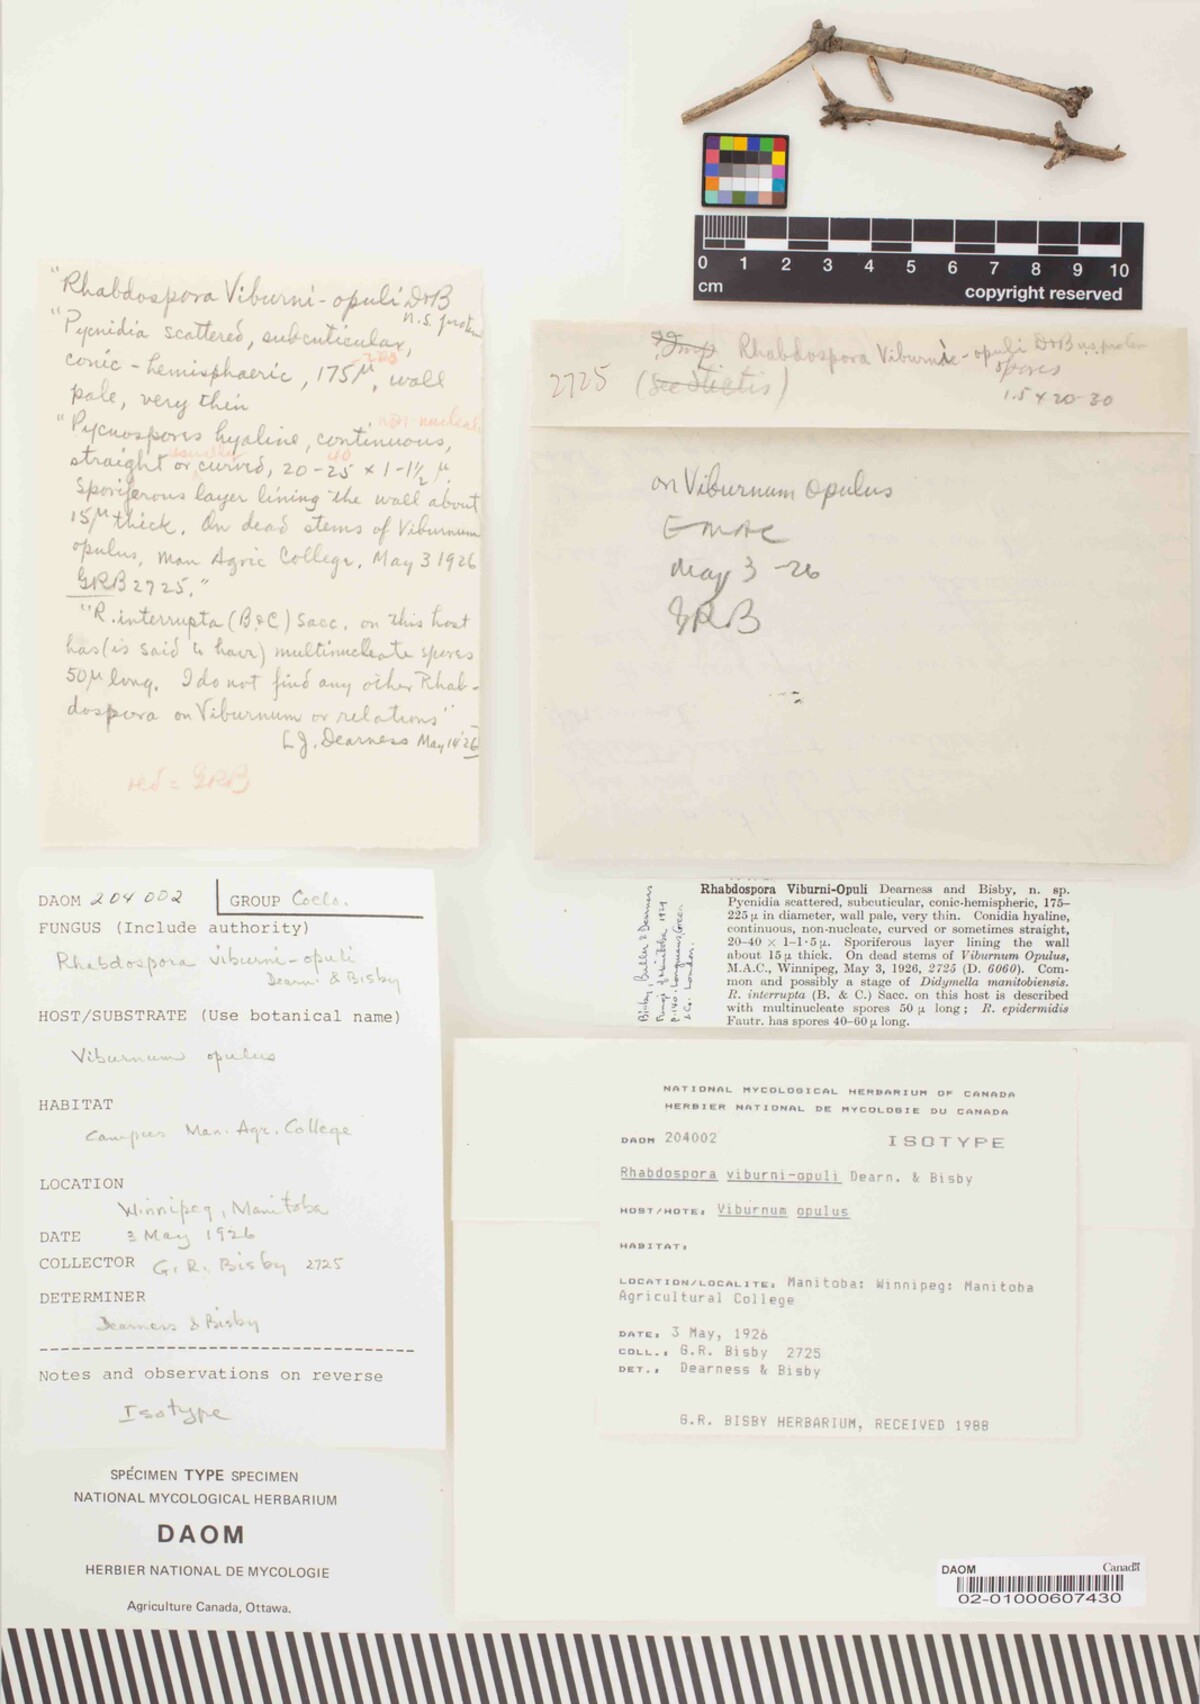 0 1 2 3 4 5 6 7 8 9 10
cm
copyright reserved
"Rhabdospora Viburni-opuli D&B
n.s. protem
"Pycnidia scattered, subcuticular,
conic-hemisphaeric, 175µ, wall
pale, very thin
non-nucleate
"Pycnospores hyaline, continuous,
usually 40
straight or curved, 20-25 × 1-1½ µ.
Sporiferous layer lining the wall about
15µ thick. On dead stems of Viburnum
opulus, Man Agric College, May 3 1926
GRB 2725."
"R. interrupta (B&C) Sacc. on this host
has (is said to have) multinucleate spores
50µ long. I do not find any other Rhab-
dospora on Viburnum or relations"
J. Dearness May 14 '26
red = GRB
Rhabdospora Viburni-opuli D&B n.s. protem
2725 (See Stictis) spores
1.5 × 20-30
on Viburnum opulus
May 3 -26
GRB
DAOM 204002 GROUP Coelo.
FUNGUS (Include authority)
Rhabdospora viburni-opuli
Dearn. & Bisby
HOST/SUBSTRATE (Use botanical name)
Viburnum opulus
HABITAT
Campus Man. Agr. College
LOCATION
Winnipeg, Manitoba
DATE 3 May 1926
COLLECTOR G. R. Bisby 2725
DETERMINER
Dearness & Bisby
Notes and observations on reverse
Isotype
SPÉCIMEN TYPE SPECIMEN
NATIONAL MYCOLOGICAL HERBARIUM
DAOM
HERBIER NATIONAL DE MYCOLOGIE
Agriculture Canada, Ottawa.
Bisby, Buller & Dearness
Fungi of Manitoba 1929
p. 140. Longmans, Green
& Co. London.
Rhabdospora Viburni-Opuli Dearness and Bisby, n. sp.
Pycnidia scattered, subcuticular, conic-hemispheric, 175–
225 µ in diameter, wall pale, very thin. Conidia hyaline,
continuous, non-nucleate, curved or sometimes straight,
20–40 × 1–1·5 µ. Sporiferous layer lining the wall
about 15 µ thick. On dead stems of Viburnum Opulus,
M.A.C., Winnipeg, May 3, 1926, 2725 (D. 6060). Com-
mon and possibly a stage of Didymella manitobiensis.
R. interrupta (B. & C.) Sacc. on this host is described
with multinucleate spores 50 µ long; R. epidermidis
Fautr. has spores 40–60 µ long.
NATIONAL MYCOLOGICAL HERBARIUM OF CANADA
HERBIER NATIONAL DE MYCOLOGIE DU CANADA
DAOM 204002 ISOTYPE
Rhabdospora viburni-opuli Dearn. & Bisby
HOST/HOTE: Viburnum opulus
HABITAT:
LOCATION/LOCALITE: Manitoba: Winnipeg: Manitoba
Agricultural College
DATE: 3 May, 1926
COLL.: G.R. Bisby 2725
DET.: Dearness & Bisby
G.R. BISBY HERBARIUM, RECEIVED 1988
DAOM Canada
02-01000607430